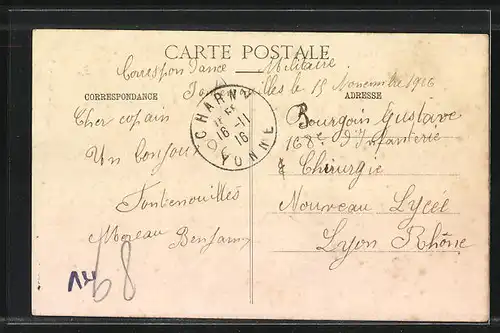 CARTE POSTALE
Correspondance Militaire
Fontenouilles le 15 Novembre 1916
CORRESPONDANCE
ADRESSE
CHARNY
16-11
16
YONNE
Cher copain
Un Bonjour
Fontenouilles
Moreau Benjamin
Bourgoin Gustave
168e d'Infanterie
Chirurgie
Nouveau Lycée
Lyon Rhône
98